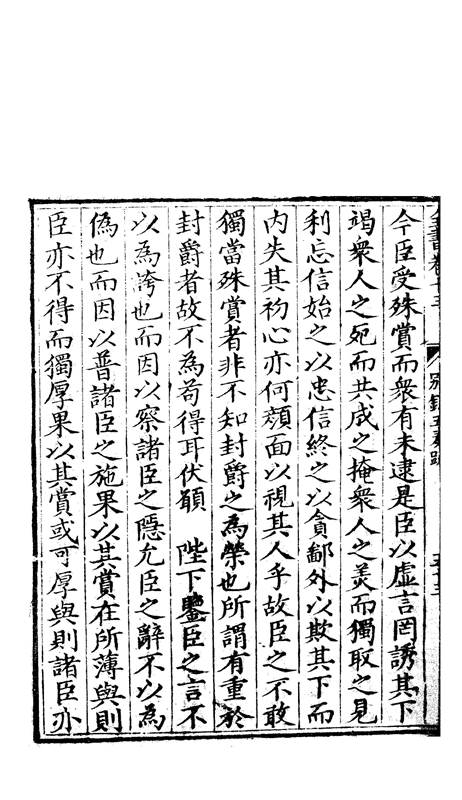 全書卷十三 別録五奏疏 五十三
今臣受殊賞而衆有未逮是臣以虛言罔誘其下
竭衆人之死而共成之掩衆人之美而獨取之見
利忘信始之以忠信終之以貪鄙外以欺其下而
内失其初心亦何顔面以視其人乎故臣之不敢
獨當殊賞者非不知封爵之為榮也所謂有重於
封爵者故不為苟得耳伏願 陛下鑒臣之言不
以為誇也而因以察諸臣之隱允臣之辭不以為
偽也而因以普諸臣之施果以其賞在所薄與則
臣亦不得而獨厚果以其賞或可厚與則諸臣亦